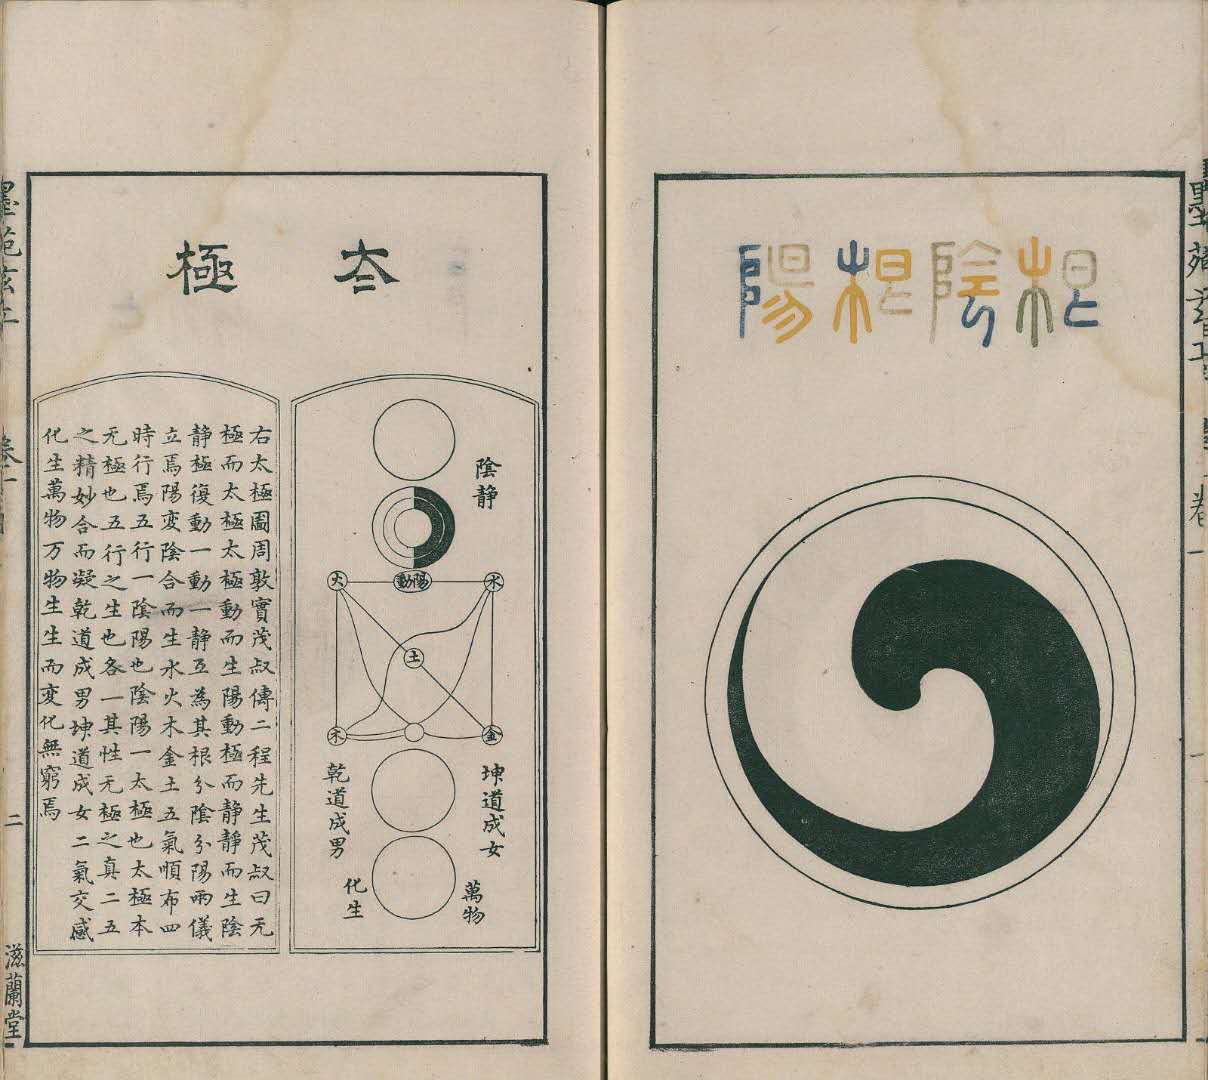 根陰根陽
墨苑玄工
卷一
夳極
陰静
火
陽動
水
土
木
金
坤道成女
乾道成男
萬物
化生
右太極圖周敦實茂叔傳二程先生茂叔曰无
極而太極太極動而生陽動極而静静而生陰
静極復動一動一静互為其根分陰分陽兩儀
立焉陽変陰合而生水火木金土五氣順布四
時行焉五行一陰陽也陰陽一太極也太極本
无極也五行之生也各一其性无極之真二五
之精妙合而凝乾道成男坤道成女二氣交感
化生萬物万物生生而変化無窮焉
墨苑玄工
卷一
二
滋蘭堂